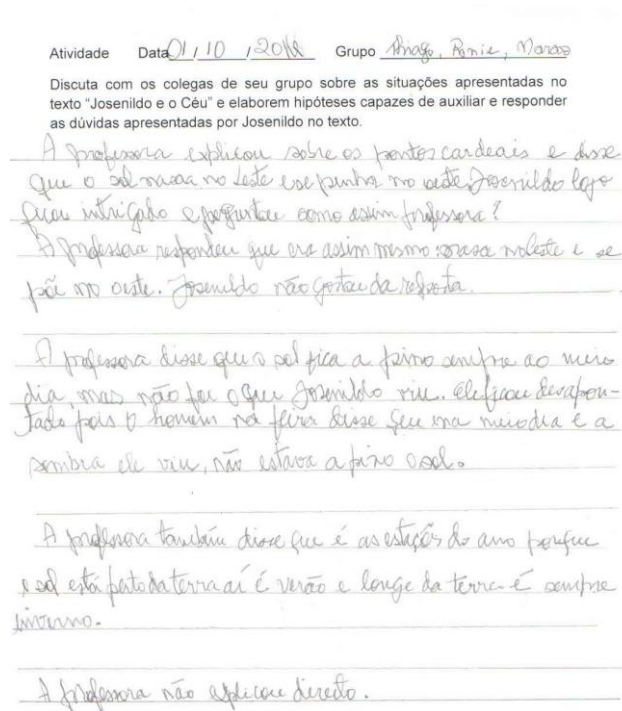 Atividade Data 01/10/2011 Grupo Thiago, Ronie, Marcos
Discuta com os colegas de seu grupo sobre as situações apresentadas no
texto “Josenildo e o Céu” e elaborem hipóteses capazes de auxiliar e responder
as dúvidas apresentadas por Josenildo no texto.
A professora explicou sobre os pontos cardeais e disse
que o sol nascia no Leste e se punha no oeste. Josenildo logo
ficou intrigado e perguntou como assim professora?
A professora respondeu que era assim mesmo: nasce no leste e se
põe no oeste. Josenildo não gostou da resposta.
A professora disse que o sol fica a pino sempre ao meio
dia, mas não foi o que Josenildo viu. Ele ficou desapon-
tado pois o homem na feira disse que era meio dia e a
sombra ele viu, não estava a pino o sol.
A professora também disse que é as estações do ano porque
o sol está perto da terra aí é verão e longe da terra é sempre
inverno.
A professora não explicou direito.